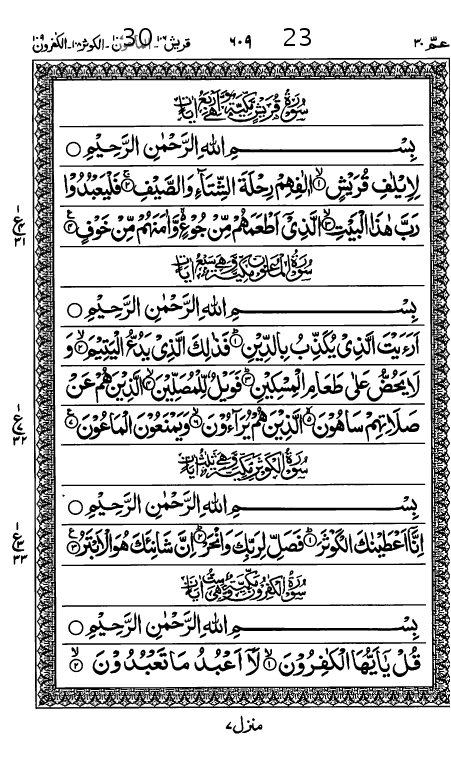 عمّ ٣٠ ٦٠٩ 23 قریش ١٠٦۔ 30 ۔الکوثر ١٠٨۔الکفرون ١٠٩
سُوْرَةُ قُرَيْشٍ مَكِّيَّةٌ وَّهِيَ اَرْبَعُ اٰيَاتٍ
بِسْــــــــــــمِ اللهِ الرَّحْمٰنِ الرَّحِيْمِ ○
لِاِيْلٰفِ قُرَيْشٍ ۙ﴿١﴾ اٖلٰفِهِمْ رِحْلَةَ الشِّتَآءِ وَالصَّيْفِ ۚ﴿٢﴾ فَلْيَعْبُدُوْا
رَبَّ هٰذَا الْبَيْتِ ۙ﴿٣﴾ الَّذِيْٓ اَطْعَمَهُمْ مِّنْ جُوْعٍ ۙ وَّاٰمَنَهُمْ مِّنْ خَوْفٍ ﴿٤﴾
ع ٣١
سُوْرَةُ الْمَاعُوْنِ مَكِّيَّةٌ وَّهِيَ سَبْعُ اٰيَاتٍ
بِسْــــــــــــمِ اللهِ الرَّحْمٰنِ الرَّحِيْمِ ○
اَرَءَيْتَ الَّذِيْ يُكَذِّبُ بِالدِّيْنِ ؕ﴿١﴾ فَذٰلِكَ الَّذِيْ يَدُعُّ الْيَتِيْمَ ۙ﴿٢﴾ وَ
لَا يَحُضُّ عَلٰى طَعَامِ الْمِسْكِيْنِ ؕ﴿٣﴾ فَوَيْلٌ لِّلْمُصَلِّيْنَ ۙ﴿٤﴾ الَّذِيْنَ هُمْ عَنْ
صَلَاتِهِمْ سَاهُوْنَ ۙ﴿٥﴾ الَّذِيْنَ هُمْ يُرَآءُوْنَ ۙ﴿٦﴾ وَيَمْنَعُوْنَ الْمَاعُوْنَ ﴿٧﴾
ع ٣٢
سُوْرَةُ الْكَوْثَرِ مَكِّيَّةٌ وَّهِيَ ثَلٰثُ اٰيَاتٍ
بِسْــــــــــــمِ اللهِ الرَّحْمٰنِ الرَّحِيْمِ ○
اِنَّآ اَعْطَيْنٰكَ الْكَوْثَرَ ؕ﴿١﴾ فَصَلِّ لِرَبِّكَ وَانْحَرْ ؕ﴿٢﴾ اِنَّ شَانِئَكَ هُوَ الْاَبْتَرُ ﴿٣﴾
ع ٣٣
سُوْرَةُ الْكٰفِرُوْنَ مَكِّيَّةٌ وَّهِيَ سِتُّ اٰيَاتٍ
بِسْــــــــــــمِ اللهِ الرَّحْمٰنِ الرَّحِيْمِ ○
قُلْ يٰٓاَيُّهَا الْكٰفِرُوْنَ ۙ﴿١﴾ لَآ اَعْبُدُ مَا تَعْبُدُوْنَ ۙ﴿٢﴾
منزل ٧